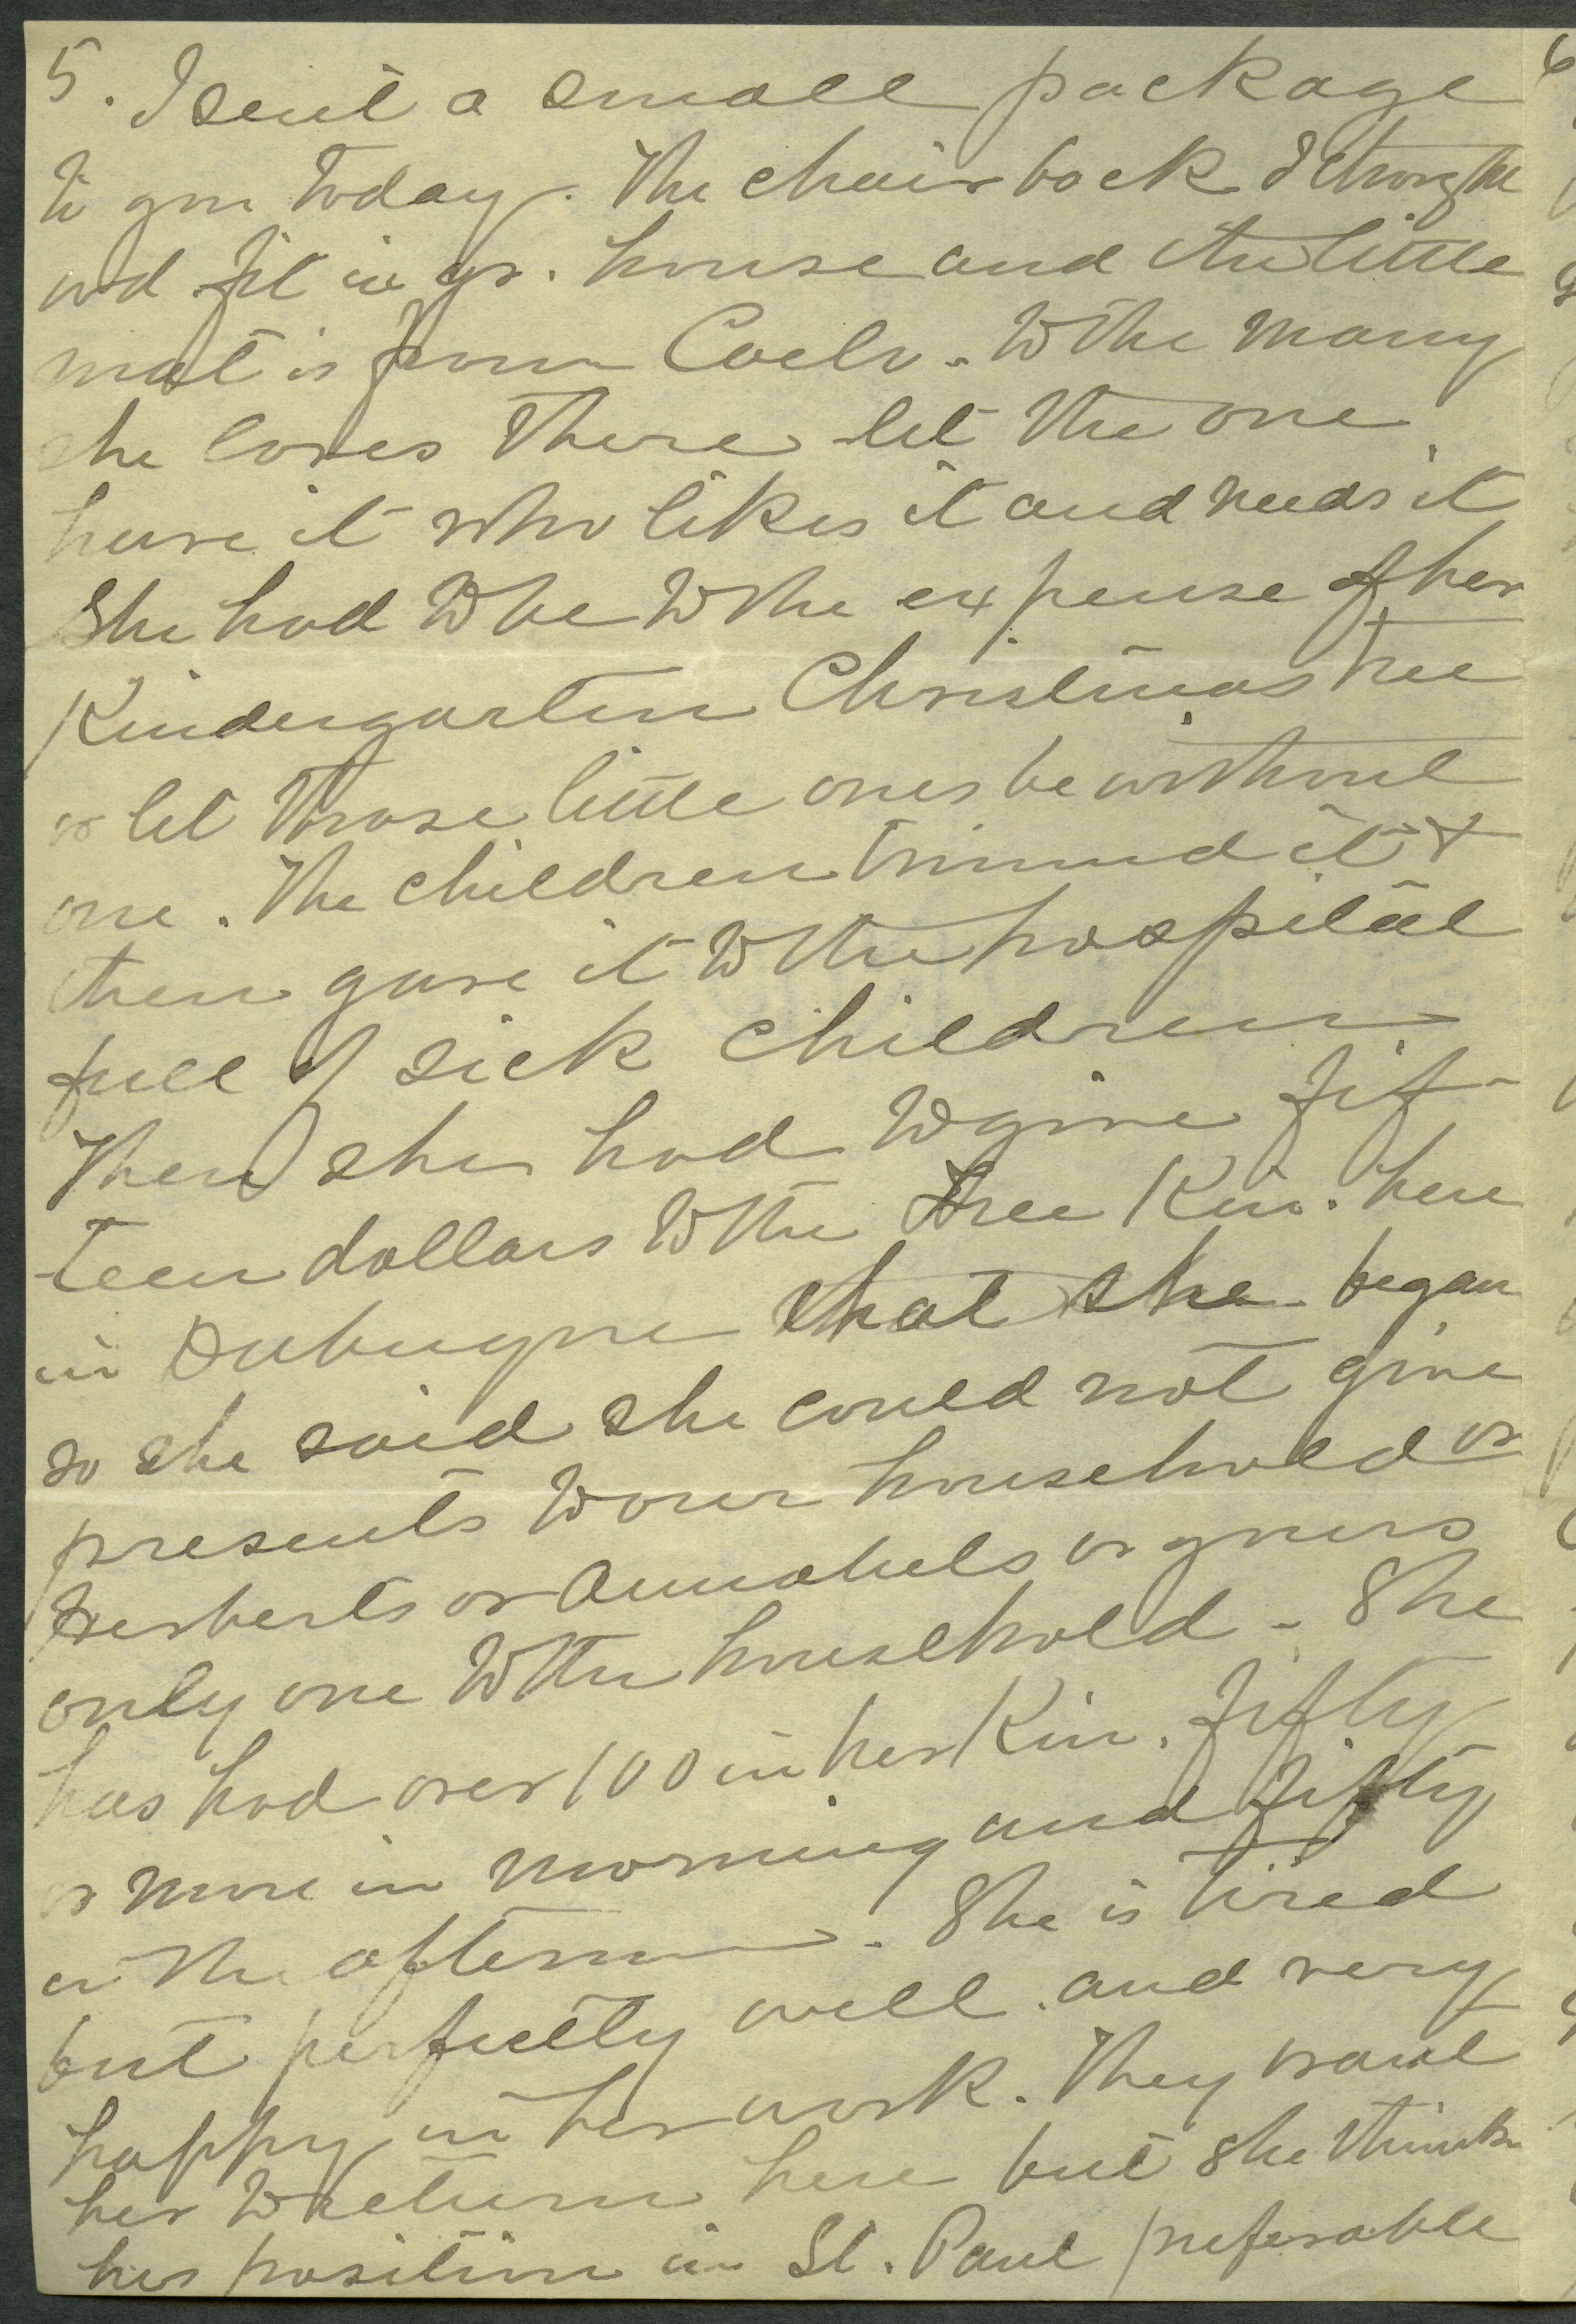 5. I sent a small package
to you today. The chair back I thought
wd fit in yr. house and the little
mat is from Coelo. To the many
she loves there let the one
have it who likes it and needs it
She had to be to the expense of her
Kindergarten Christmas tree
or let those little ones be without
one. The children trimmed it +
then gave it to the hospital
full of sick children
Then she had to give fif-
teen dollars to the Free Kin. here
in Dubuque that she began
so she said she could not give
presents to our household or
Herberts or Annabels or yours
only one to the household - She
has had over 100 in her Kin. fifty
or more in morning and fifty
in the afternoon. She is tired
but perfectly well. and very
happy in her work. They want
her to return here but she thinks
her position in St. Paul preferable
6